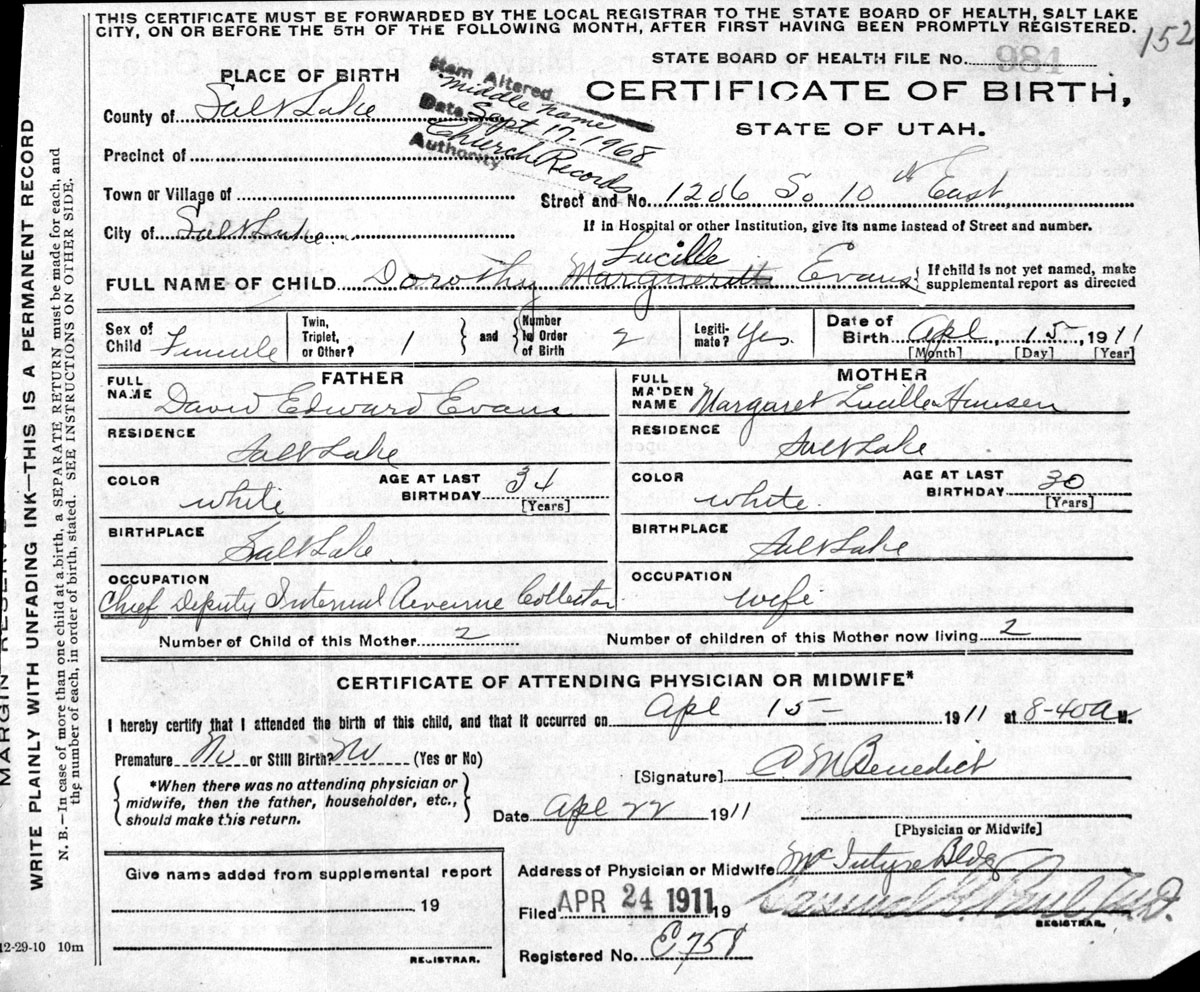 THIS CERTIFICATE MUST BE FORWARDED BY THE LOCAL REGISTRAR TO THE STATE BOARD OF HEALTH, SALT LAKE
CITY, ON OR BEFORE THE 5TH OF THE FOLLOWING MONTH, AFTER FIRST HAVING BEEN PROMPTLY REGISTERED.
152
STATE BOARD OF HEALTH FILE No. 984
CERTIFICATE OF BIRTH,
STATE OF UTAH.
PLACE OF BIRTH
Item Altered middle name
Date Sept 17-1968
Authority Church Records
County of Salt Lake
Precinct of
Town or Village of
Street and No. 1206 So 10th East
City of Salt Lake
If in Hospital or other Institution, give its name instead of Street and number.
Lucille
FULL NAME OF CHILD Dorothy Marguerett Evans { If child is not yet named, make supplemental report as directed
Sex of Child Female
Twin, Triplet, or Other? 1 } and { Number in Order of Birth 2
Legitimate? Yes.
Date of Birth Apl 15, 1911
[Month] [Day] [Year]
FATHER
FULL NAME David Edward Evans
RESIDENCE Salt Lake
COLOR white
AGE AT LAST BIRTHDAY 34
[Years]
BIRTHPLACE Salt Lake
OCCUPATION
Chief Deputy Internal Revenue Collector
MOTHER
FULL MAIDEN NAME Margaret Lucille Hansen
RESIDENCE Salt Lake
COLOR white
AGE AT LAST BIRTHDAY 30
[Years]
BIRTHPLACE Salt Lake
OCCUPATION wife
Number of Child of this Mother 2
Number of children of this Mother now living 2
CERTIFICATE OF ATTENDING PHYSICIAN OR MIDWIFE*
I hereby certify that I attended the birth of this child, and that it occurred on Apl 15 1911 at 8-40a M.
Premature No or Still Birth? No (Yes or No)
[Signature] C M Benedict
{ *When there was no attending physician or
midwife, then the father, householder, etc.,
should make this return. }
Date Apl 22 1911
[Physician or Midwife]
Give name added from supplemental report
19
REGISTRAR.
Address of Physician or Midwife McIntyre Bldg
Filed APR 24 1911 19
REGISTRAR.
Registered No.
12-29-10 10m
MARGIN RESERVE
WRITE PLAINLY WITH UNFADING INK—THIS IS A PERMANENT RECORD
N. B.—In case of more than one child at a birth, a SEPARATE RETURN must be made for each, and
the number of each, in order of birth, stated. SEE INSTRUCTIONS ON OTHER SIDE.